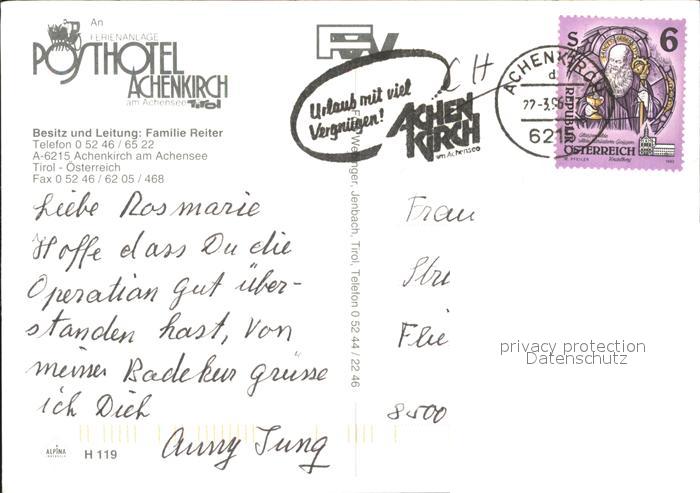 An
FERIENANLAGE
POSTHOTEL
ACHENKIRCH
am Achensee Tirol
Besitz und Leitung: Familie Reiter
Telefon 0 52 46 / 65 22
A-6215 Achenkirch am Achensee
Tirol - Österreich
Fax 0 52 46 / 62 05 / 468
Liebe Rosmarie
Hoffe dass Du die
Operation gut über-
standen hast, Von
meiner Badekur grüsse
ich Dich
Anny Jung
ALPINA
H 119
Jenbach, Tirol, Telefon 0 52 44 / 22 46
Urlaub mit viel
Vergnügen!
ACHEN
KIRCH
am Achensee
CH
ACHENKIRCH
6215
S 6
REPUBLIK
ÖSTERREICH
Frau
Flie
8500
privacy protection
Datenschutz